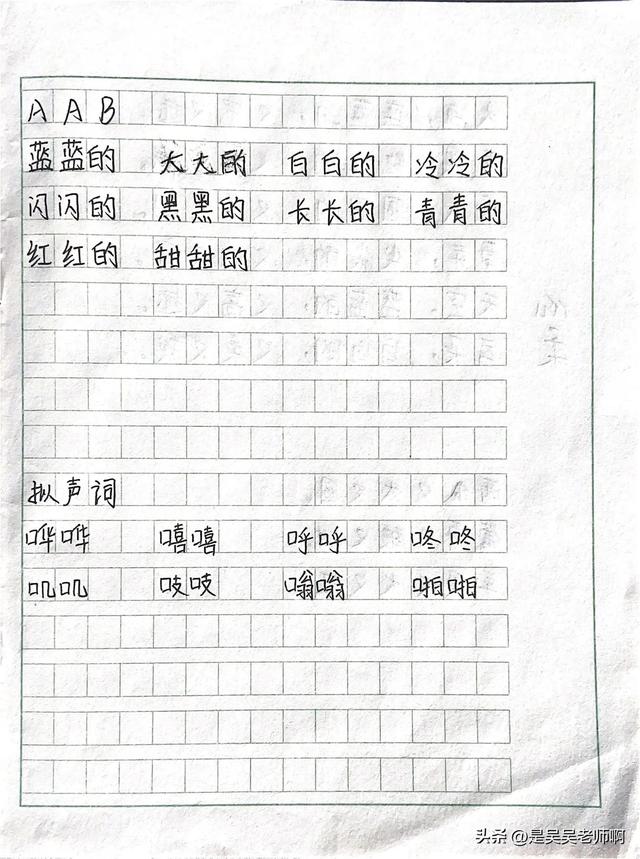 AAB
蓝蓝的 大大的 白白的 冷冷的
闪闪的 黑黑的 长长的 青青的
红红的 甜甜的
拟声词
哗哗 嘻嘻 呼呼 咚咚
叽叽 吱吱 嗡嗡 啪啪
头条 @是吴吴老师啊